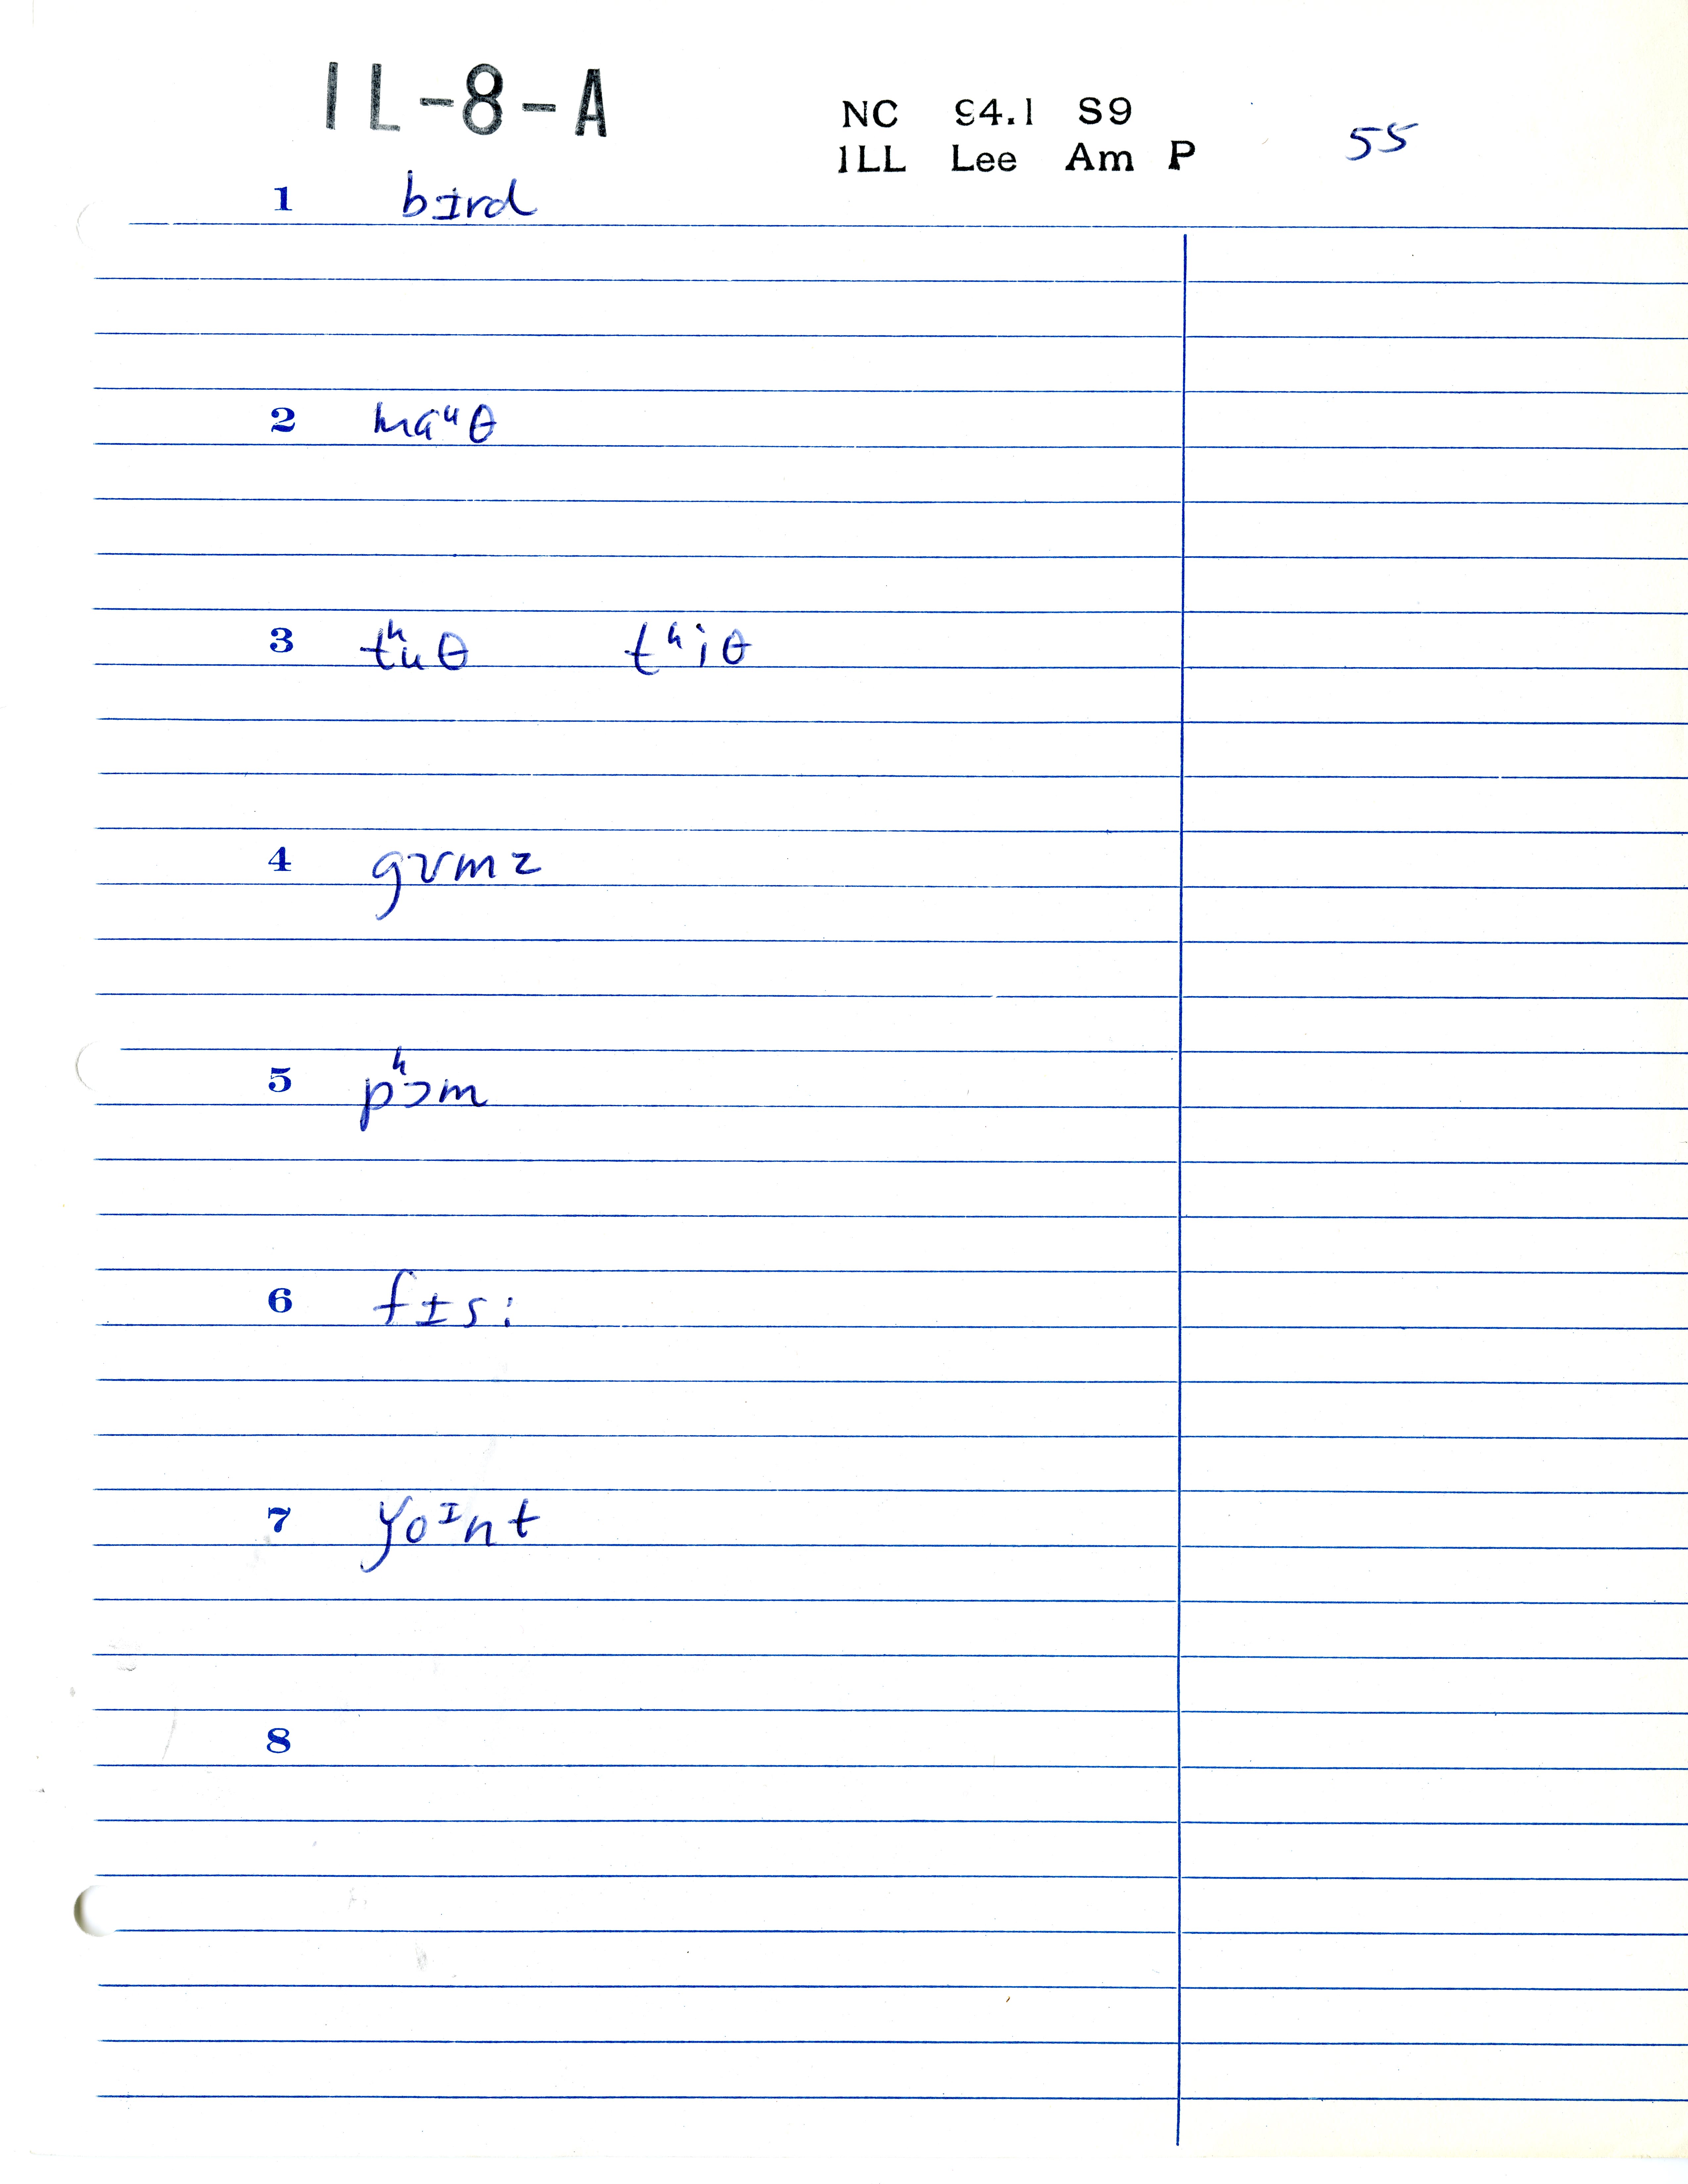 IL-8-A
NC 94.1 S9
ILL Lee Am P
55
1 bɪrd
2 maᵘθ
3 tʰuθ tʰiθ
4 gʊmz
5 pʰɔm
6 fɪs:
7 yoᶦnt
8